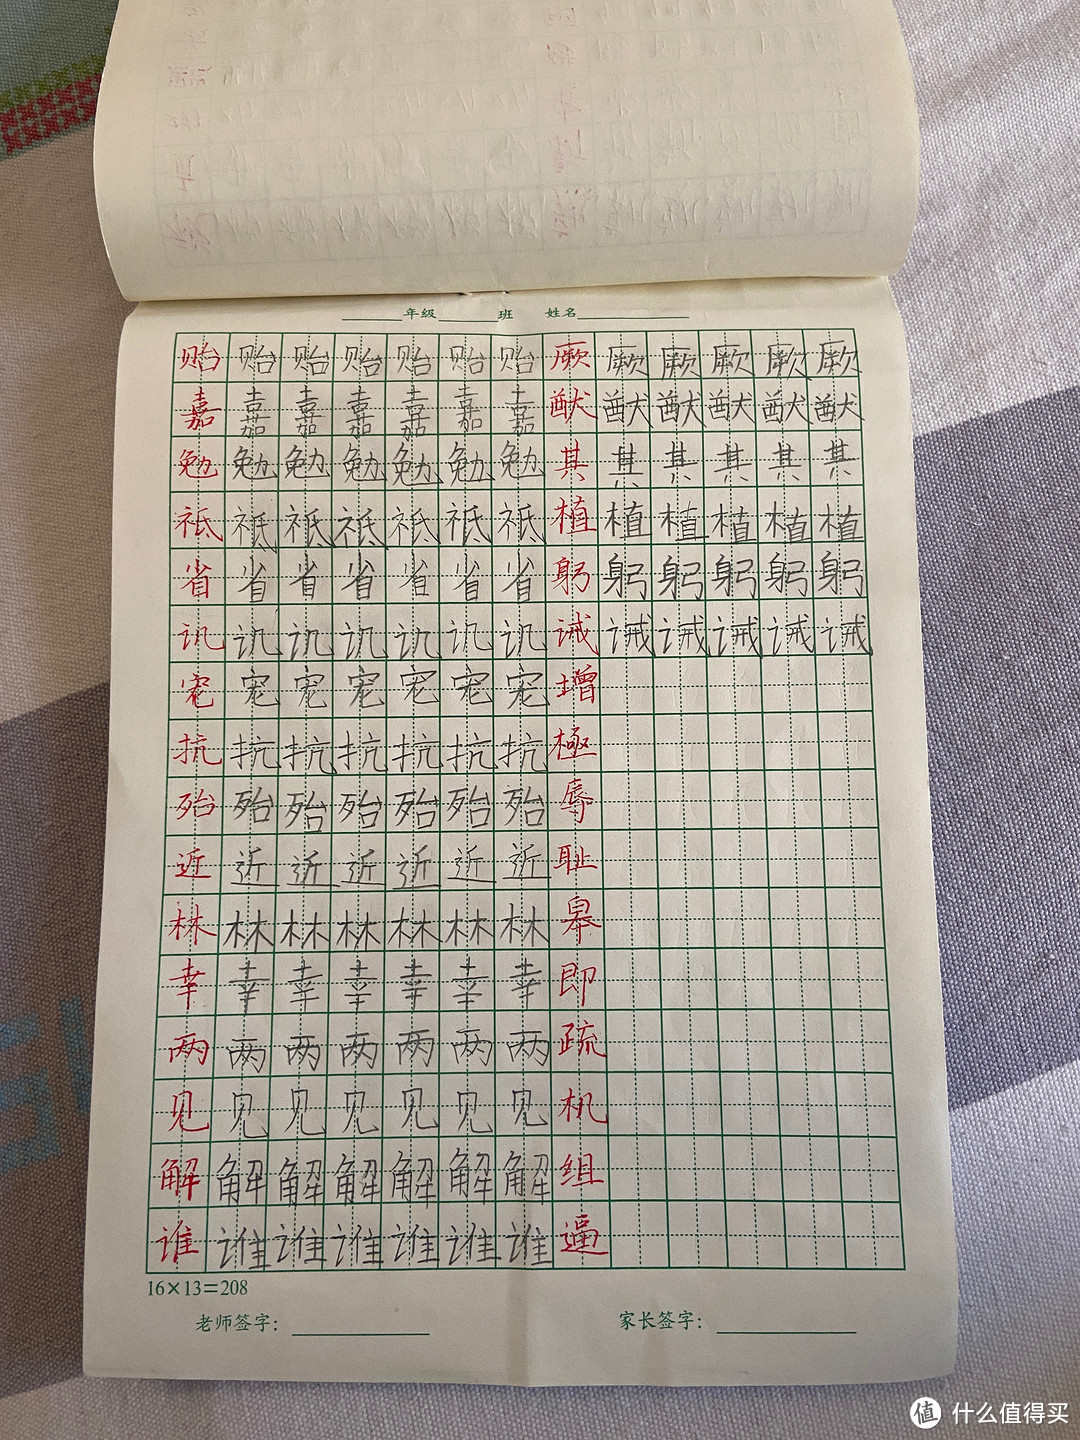 年级 班 姓名
贻 贻 贻 贻 贻 贻 贻 厥 厥 厥 厥 厥 厥
嘉 嘉 嘉 嘉 嘉 嘉 嘉 猷 猷 猷 猷 猷 猷
勉 勉 勉 勉 勉 勉 勉 其 其 其 其 其 其
祗 祗 祗 祗 祗 祗 祗 植 植 植 植 植 植
省 省 省 省 省 省 省 躬 躬 躬 躬 躬 躬
讥 讥 讥 讥 讥 讥 讥 诫 诫 诫 诫 诫 诫
宠 宠 宠 宠 宠 宠 宠 增
抗 抗 抗 抗 抗 抗 抗 極
殆 殆 殆 殆 殆 殆 殆 辱
近 近 近 近 近 近 近 耻
林 林 林 林 林 林 林 皋
幸 幸 幸 幸 幸 幸 幸 即
两 两 两 两 两 两 两 疏
见 见 见 见 见 见 见 机
解 解 解 解 解 解 解 组
谁 谁 谁 谁 谁 谁 谁 逼
16×13=208
老师签字： 家长签字：
值 什么值得买